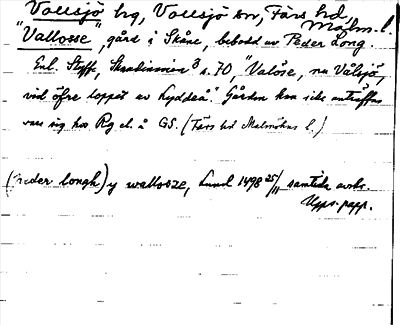 Vollsjö hg, Vollsjö sn, Färs hd, Malm. l.
"Vallosse", gård i Skåne, bebodd av Peder Long.
Enl. Styffe, Skandinavien³ s. 70, "Valöse, nu Välsjö,
vid öfre loppet av Kyddeå". Gården kan icke anträffas
vare sig hos Rg el. å GS. (Färs hd Malmöhus l.)
(Peder longh) y wallosze, Lund 1498 25/11 samtida avskr.
Upps. papp.